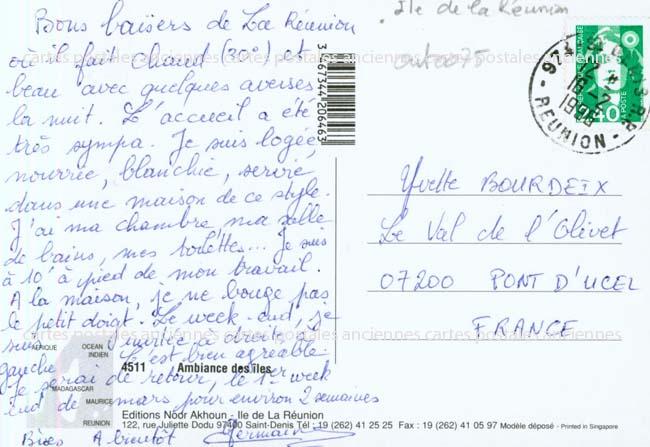 Bons baisers de La Réunion
où il fait chaud (30°) et
beau avec quelques averses
la nuit. L'accueil a été
très sympa. Je suis logée,
nourrie, blanchie, servie
dans une maison de ce style.
J'ai ma chambre, ma salle
de bains, mes toilettes... Je suis
à 10' à pied de mon travail.
A la maison, je ne bouge pas
le petit doigt. Le week-end, je
suis invitée à droite à
gauche. C'est bien agréable.
Je serai de retour, le 1er week
end de mars pour environ 2 semaines
Bises A bientôt Germain
3 167344 206463
Ile de la Réunion
REUNION
LA POSTE
Yvette BOURDEIX
Le Val de l'Olivet
07200 PONT D'UCEL
FRANCE
cartes postales anciennes cartes postales anciennes cartes postales anciennes
AFRIQUE
OCEAN
INDIEN
MADAGASCAR
MAURICE
REUNION
4511 Ambiance des îles
Editions Noor Akhoun - Ile de La Réunion
122, rue Juliette Dodu 97400 Saint-Denis Tél : 19 (262) 41 25 25 Fax : 19 (262) 41 05 97 Modèle déposé - Printed in Singapore